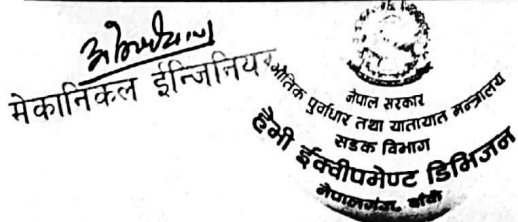 मेकानिकल ईन्जिनियर
नेपाल सरकार
भौतिक पुर्वाधार तथा यातायात मन्त्रालय
सडक विभाग
हेभी ईक्वीपमेण्ट डिभिजन
नेपालगंज, बाँके